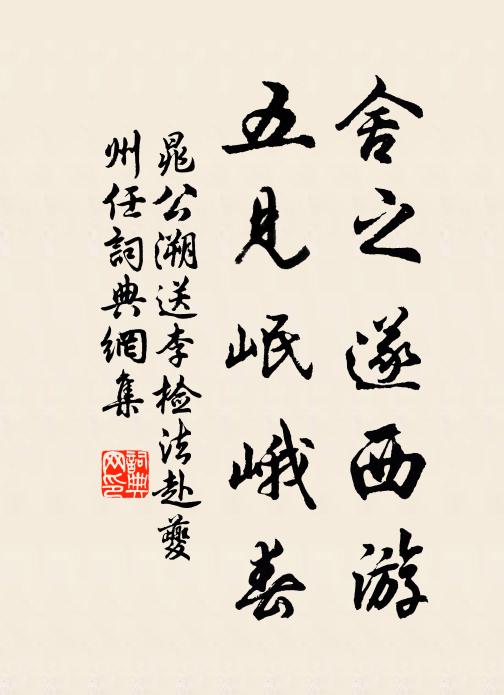 舍之遂西游
五见岷峨春
晁公溯送李检法赴夔
州任詞典網集
詞典
网印